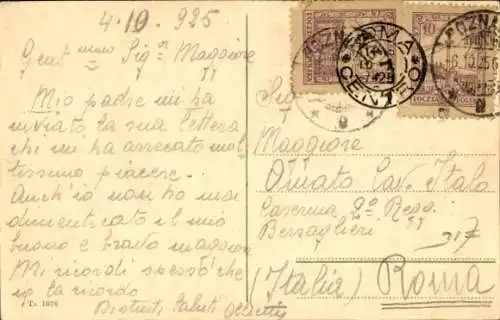 4.10.925
Gent.mmo Sig.r Maggiore
Mio padre mi ha
inviato la sua lettera
che mi ha arrecato mol-
tissimo piacere.
Anch'io non ho mai
dimenticato il mio
buono e bravo maggiore
Mi ricordi spesso che
io la ricordo
Distinti Saluti
Tr. 1076
Sig.
Maggiore
Cav. Italo
Caserma 2º Regg.
Bersaglieri
(Italia) Roma
ROMA
CENTRO
POZNA
6.10.25
10